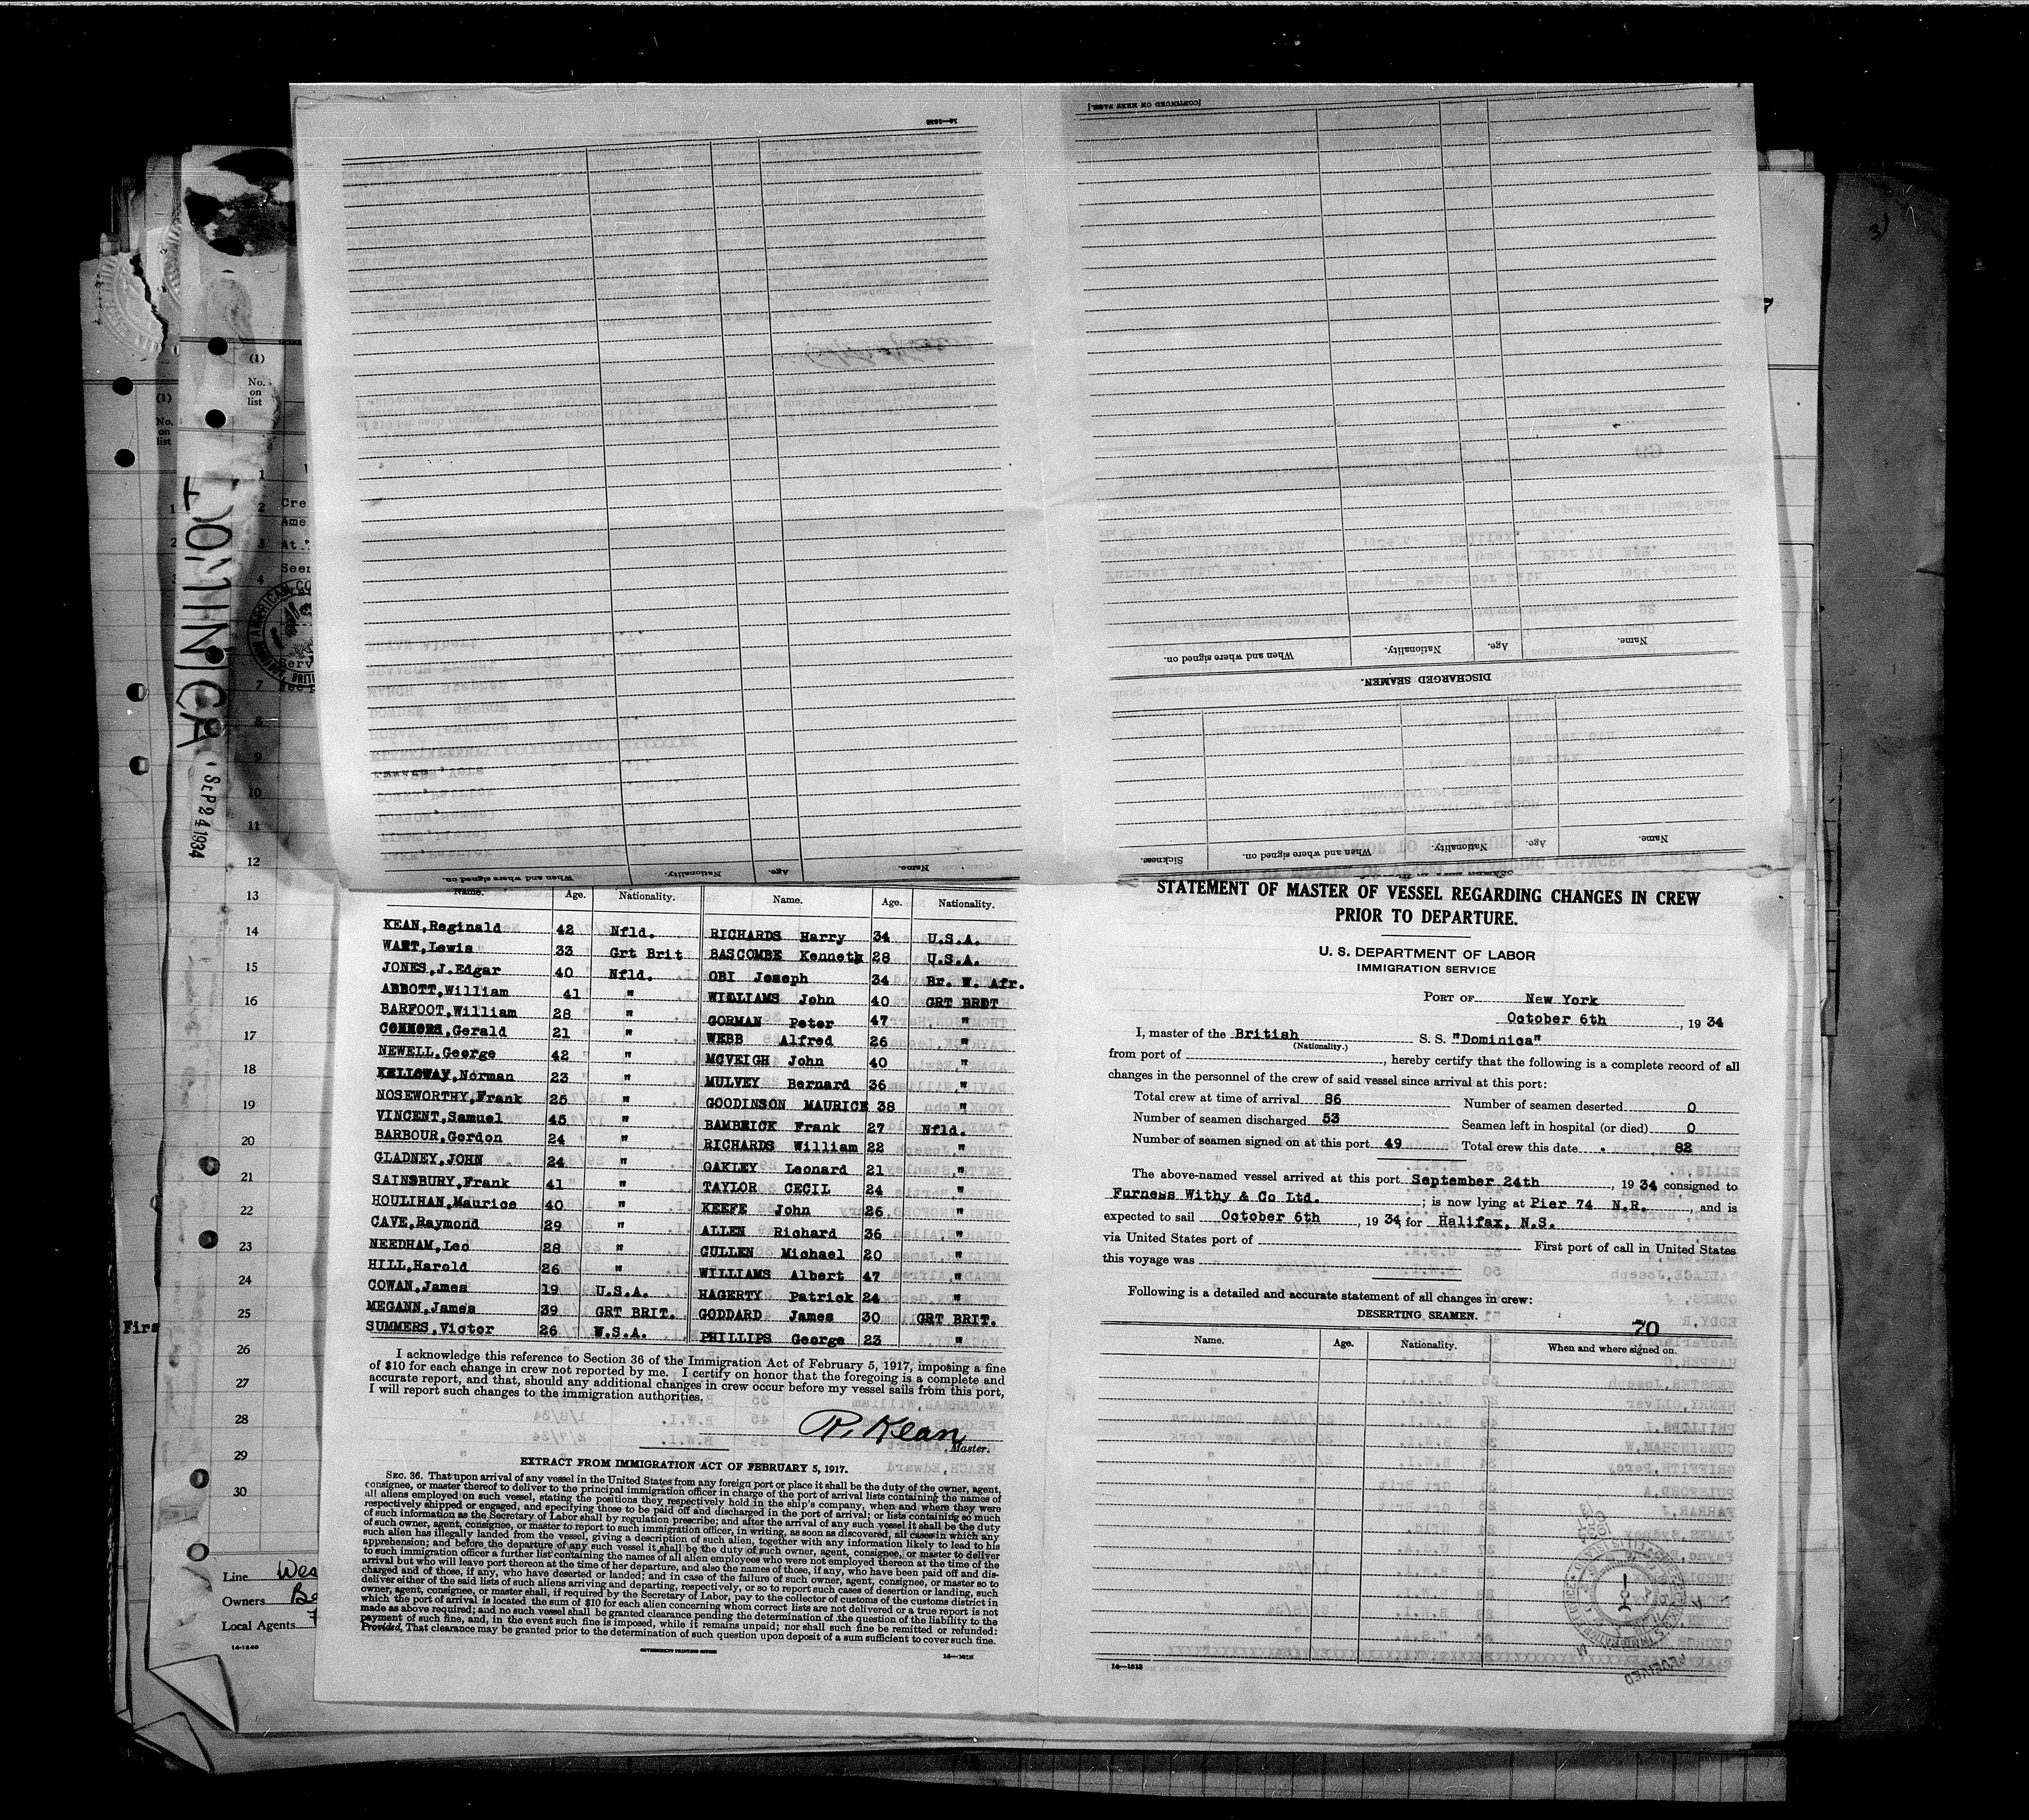 DOMINICA
SEP 24 1934
(1)
No.
on
list
(1)
No.
on
list
Cre
Ame
At
Seer
Serv
1
2
3
4
7
8
9
10
11
12
13
14
15
16
17
18
19
20
21
22
23
24
25
26
27
28
29
30
Firs
Line Wes
Owners Be
Local Agents
14-1240
14—1618
When and where signed on. Nationality. Age. Name.
[CONTINUED ON NEXT PAGE.]
Name. Age. Nationality. When and where signed on.
DISCHARGED SEAMEN.
Name. Age. Nationality. When and where signed on. Sickness.
Name. Age. Nationality. Name. Age. Nationality.
KEAN,Reginald 42 Nfld. RICHARDS Harry 34 U.S.A.
WAET,Lewis 33 Grt Brit BASCOMBE Kenneth 28 U.S.A.
JONES,J.Edgar 40 Nfld. OBI Joseph 34 Br. W. Afr.
ABBOTT,William 41 " WILLIAMS John 40 GRT BRIT
BARFOOT,William 28 " GORMAN Peter 47 "
CONNORS,Gerald 21 " WEBB Alfred 26 "
NEWELL,George 42 " MCVEIGH John 40 "
KELLOWAY,Norman 23 " MULVEY Bernard 36 "
NOSEWORTHY,Frank 25 " GOODINSON MAURICE 38 "
VINCENT,Samuel 45 " BAMBRICK Frank 27 Nfld.
BARBOUR,Gordon 24 " RICHARDS William 22 "
GLADNEY,JOHN 24 " OAKLEY Leonard 21 "
SAINSBURY,Frank 41 " TAYLOR CECIL 24 "
HOULIHAN,Maurice 40 " KEEFE John 26 "
CAVE,Raymond 29 " ALLEN Richard 36 "
NEEDHAM,Leo 28 " CULLEN Michael 20 "
HILL,Harold 26 " WILLIAMS Albert 47 "
COWAN,James 19 U.S.A. HAGERTY Patrick 24 "
MEGANN,James 39 GRT BRIT. GODDARD James 30 GRT BRIT.
SUMMERS,Victor 26 U.S.A. PHILLIPS George 23 "
I acknowledge this reference to Section 36 of the Immigration Act of February 5, 1917, imposing a fine
of $10 for each change in crew not reported by me. I certify on honor that the foregoing is a complete and
accurate report, and that, should any additional changes in crew occur before my vessel sails from this port,
I will report such changes to the immigration authorities.
R. Kean
, Master.
EXTRACT FROM IMMIGRATION ACT OF FEBRUARY 5, 1917.
SEC. 36. That upon arrival of any vessel in the United States from any foreign port or place it shall be the duty of the owner, agent,
consignee, or master thereof to deliver to the principal immigration officer in charge of the port of arrival lists containing the names of
all aliens employed on such vessel, stating the positions they respectively hold in the ship's company, when and where they were
respectively shipped or engaged, and specifying those to be paid off and discharged in the port of arrival; or lists containing so much
of such information as the Secretary of Labor shall by regulation prescribe; and after the arrival of any such vessel it shall be the duty
of such owner, agent, consignee, or master to report to such immigration officer, in writing, as soon as discovered, all cases in which any
such alien has illegally landed from the vessel, giving a description of such alien, together with any information likely to lead to his
apprehension; and before the departure of any such vessel it shall be the duty of such owner, agent, consignee, or master to deliver
to such immigration officer a further list containing the names of all alien employees who were not employed thereon at the time of the
arrival but who will leave port thereon at the time of her departure, and also the names of those, if any, who have been paid off and dis-
charged and of those, if any, who have deserted or landed; and in case of the failure of such owner, agent, consignee, or master so to
deliver either of the said lists of such aliens arriving and departing, respectively, or so to report such cases of desertion or landing, such
owner, agent, consignee, or master shall, if required by the Secretary of Labor, pay to the collector of customs of the customs district in
which the port of arrival is located the sum of $10 for each alien concerning whom correct lists are not delivered or a true report is not
made as above required; and no such vessel shall be granted clearance pending the determination of the question of the liability to the
payment of such fine, and, in the event such fine is imposed, while it remains unpaid; nor shall such fine be remitted or refunded:
Provided, That clearance may be granted prior to the determination of such question upon deposit of a sum sufficient to cover such fine.
GOVERNMENT PRINTING OFFICE
14—1618
STATEMENT OF MASTER OF VESSEL REGARDING CHANGES IN CREW
PRIOR TO DEPARTURE.
U. S. DEPARTMENT OF LABOR
IMMIGRATION SERVICE
PORT OF New York
October 6th , 19 34
I, master of the British S. S. "Dominica"
(Nationality.)
from port of , hereby certify that the following is a complete record of all
changes in the personnel of the crew of said vessel since arrival at this port:
Total crew at time of arrival 86 Number of seamen deserted 0
Number of seamen discharged 53 Seamen left in hospital (or died) 0
Number of seamen signed on at this port 49 Total crew this date 82
The above-named vessel arrived at this port September 24th , 19 34 consigned to
Furness Withy & Co Ltd. ; is now lying at Pier 74 N.R. , and is
expected to sail October 6th , 19 34, for Halifax, N.S.
via United States port of First port of call in United States
this voyage was
Following is a detailed and accurate statement of all changes in crew:
DESERTING SEAMEN.
70
Name. Age. Nationality. When and where signed on.
14—1618